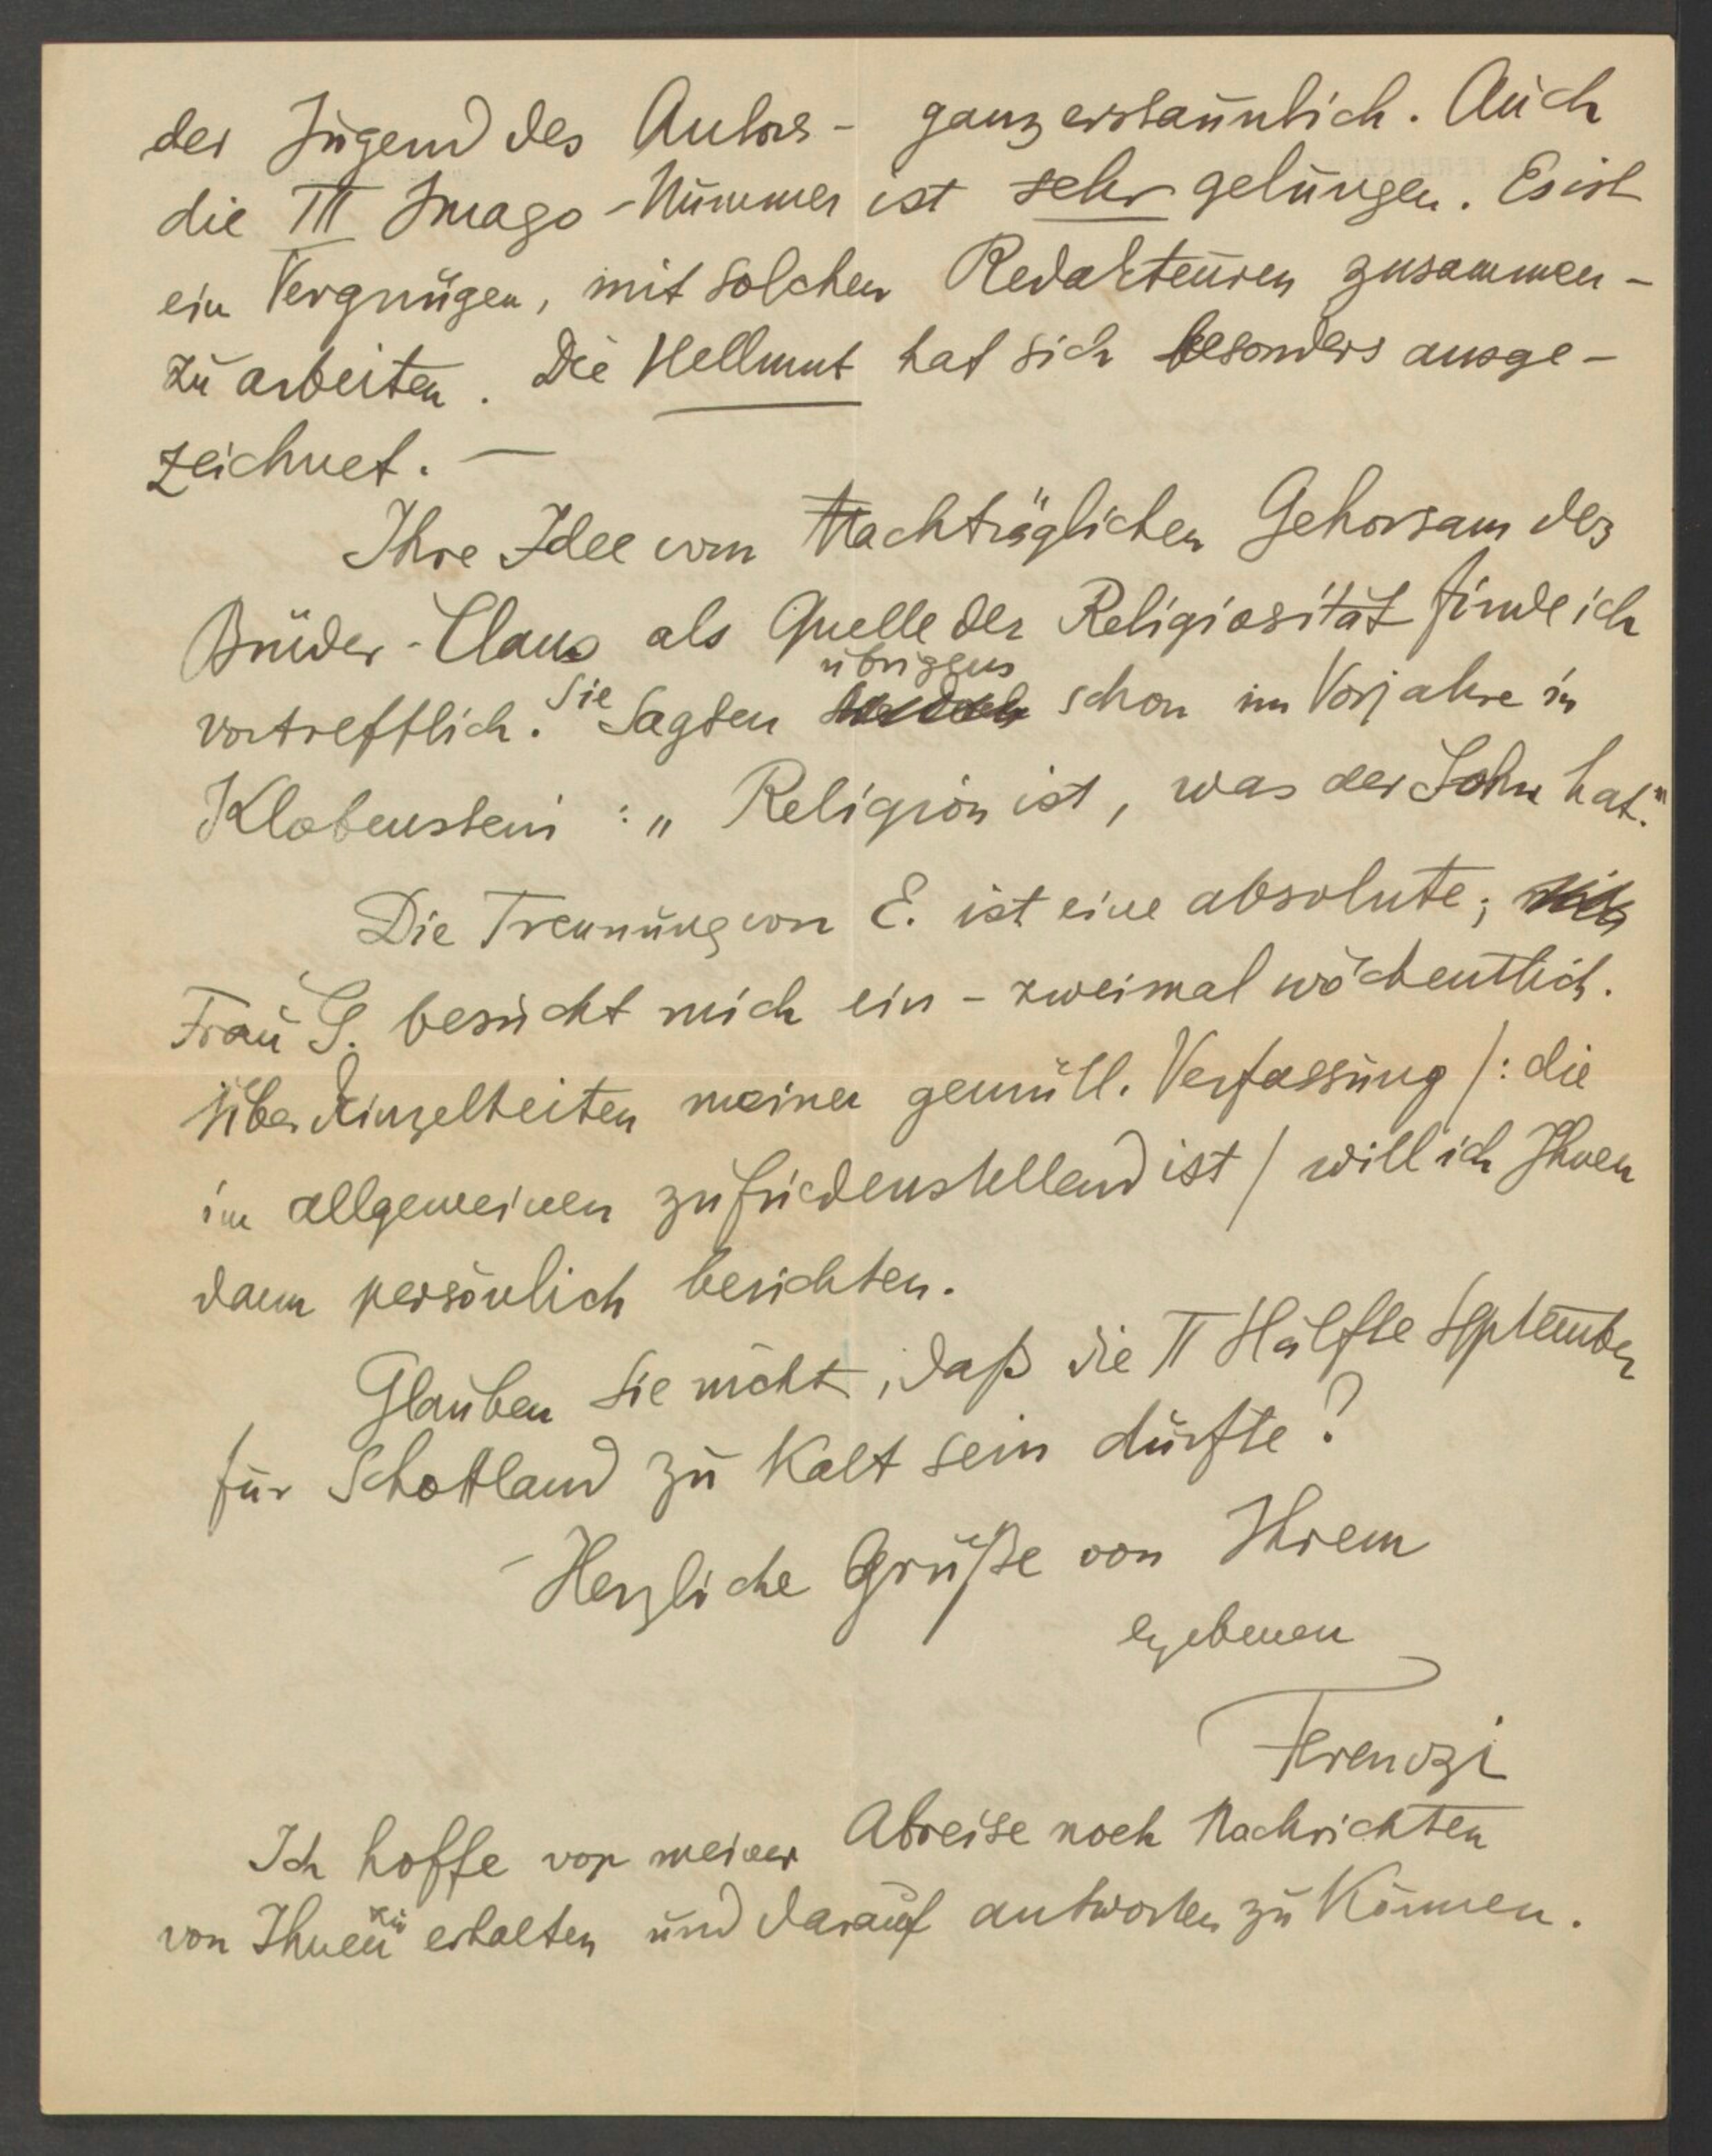 der Jugend des Autors - ganz erstaunlich. Auch
die III Imago-Nummer ist sehr gelungen. Es ist
ein Vergnügen, mit solchen Redakteuren zusammen-
zu arbeiten. Die Hellmut hat sich besonders ausge-
zeichnet. —
Ihre Idee vom Nachträglichen Gehorsam des
Brüder-Clans als Quelle der Religiosität finde ich
vortrefflich. Sie sagten übrigens schon im Vorjahre in
Klobenstein: „Religion ist, was der Sohn hat."
Die Trennung von E. ist eine absolute;
Frau G. besucht mich ein - zweimal wöchentlich.
Über Einzelheiten meiner gemütl. Verfassung /: die
im allgemeinen zufriedenstellend ist / will ich Ihnen
dann persönlich berichten.
Glauben Sie nicht, daß die II Hälfte September
für Schottland zu kalt sein dürfte?
Herzliche Grüße von Ihrem
ergebenen
Ferenczi
Ich hoffe vor meiner Abreise noch Nachrichten
von Ihnen zu erhalten und darauf antworten zu können.